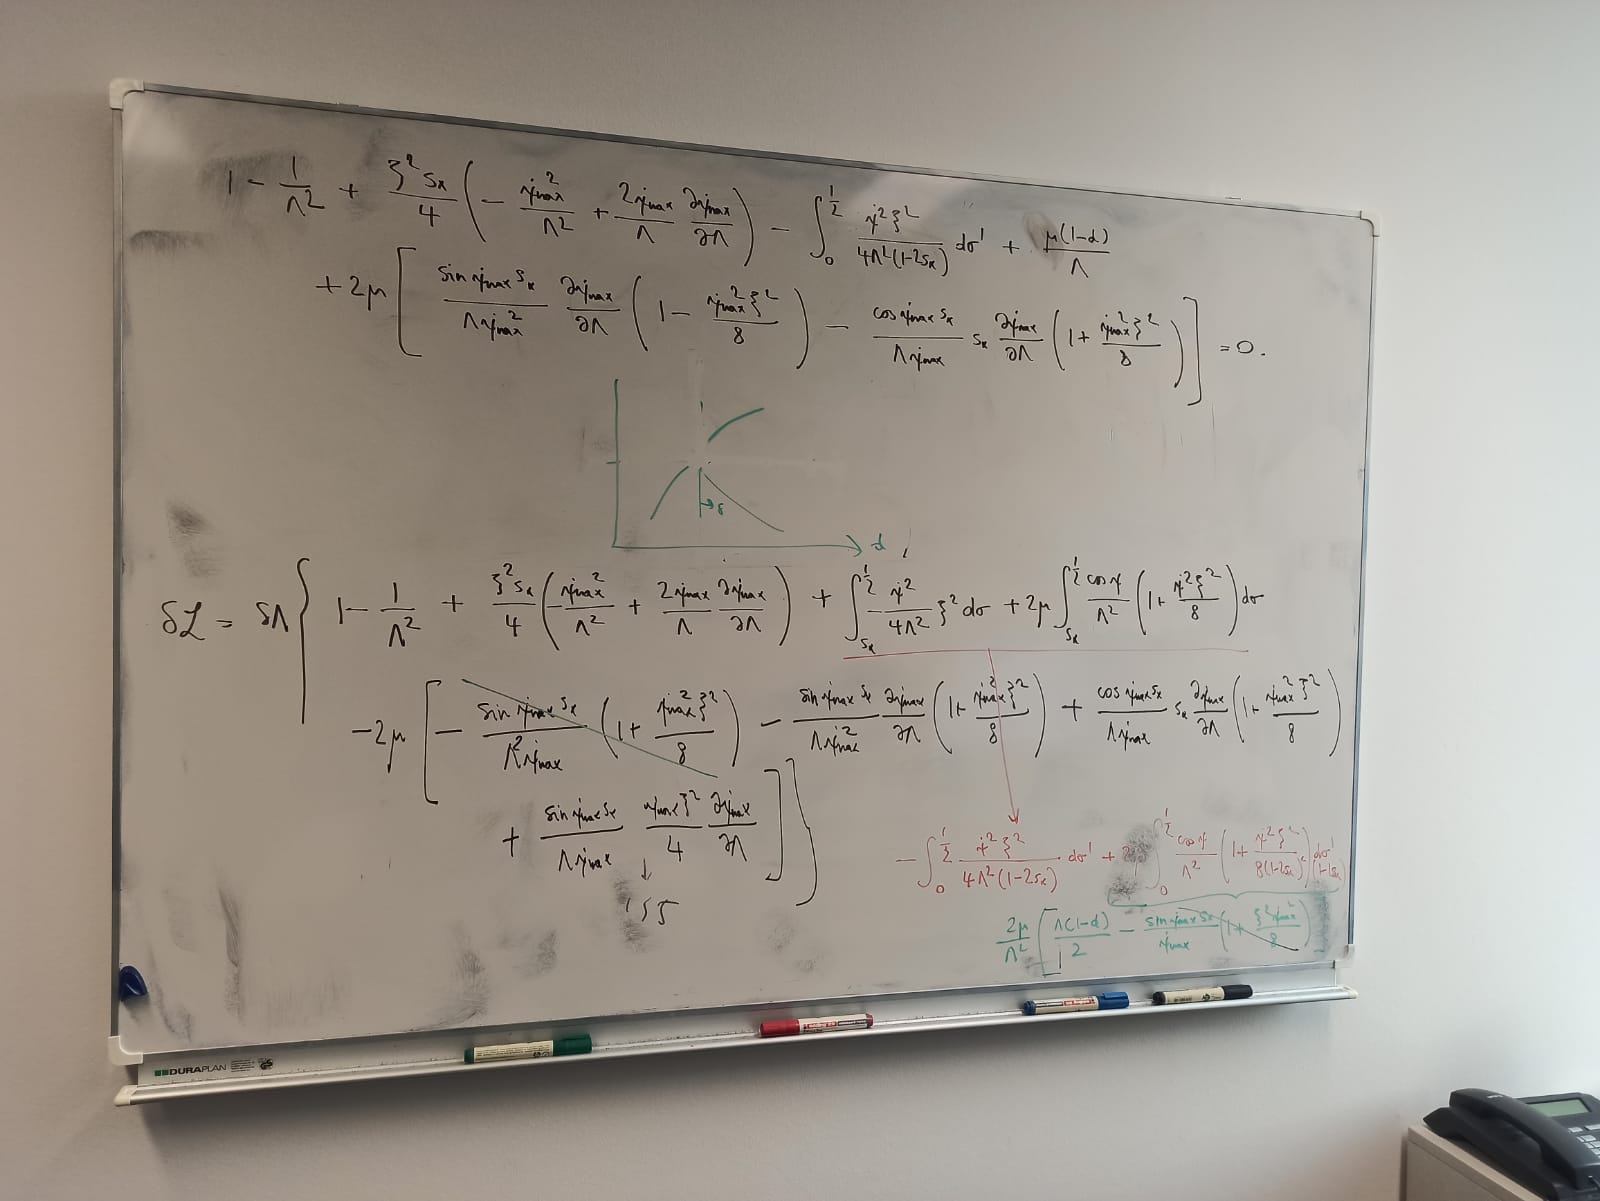 1 - 1/Λ² + ξ² s_* / 4 ( - ψ̇max² / Λ² + 2ψ̇max / Λ ∂ψ̇max / ∂Λ ) - ∫₀^{1/2} ψ̇² ξ² / 4Λ²(1-2s_*) dσ' + μ(1-d) / Λ
+ 2μ [ sin ψ̇max s_* / Λ ψ̇max² ∂ψ̇max / ∂Λ ( 1 - ψ̇max² ξ² / 8 ) - cos ψ̇max s_* / Λ ψ̇max s_* ∂ψ̇max / ∂Λ ( 1 + ψ̇max² ξ² / 8 ) ] = 0.
δ
d
δℒ = δΛ { 1 - 1/Λ² + ξ² s_* / 4 ( - ψ̇max² / Λ² + 2ψ̇max / Λ ∂ψ̇max / ∂Λ ) + ∫_{s_*}^{1/2} - ψ̇² / 4Λ² ξ² dσ + 2μ ∫_{s_*}^{1/2} cos ψ / Λ² ( 1 + ψ̇² ξ² / 8 ) dσ
- 2μ [ - sin ψ̇max s_* / Λ² ψ̇max ( 1 + ψ̇max² ξ² / 8 ) - sin ψ̇max s_* / Λ ψ̇max² ∂ψ̇max / ∂Λ ( 1 + ψ̇max² ξ² / 8 ) + cos ψ̇max s_* / Λ ψ̇max s_* ∂ψ̇max / ∂Λ ( 1 + ψ̇max² ξ² / 8 )
+ sin ψ̇max s_* / Λ ψ̇max ψ̇max ξ² / 4 ∂ψ̇max / ∂Λ ] }
- ∫₀^{1/2} ψ̇² ξ² / 4Λ²(1-2s_*) dσ' + ∫₀^{1/2} cos ψ / Λ² ( 1 + ψ̇² ξ² / 8(1-2s_*)² ) dσ'
2μ / Λ² [ Λ(1-d) / 2 - sin ψ̇max s_* / ψ̇max ( 1 + ξ² ψ̇max² / 8 )
DURAPLAN